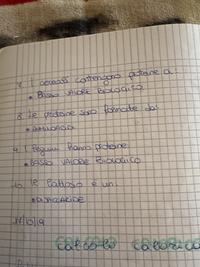 7. I cereali contengono proteine a:
• BASSO VALORE BIOLOGICO
8. Le proteine sono formate da:
• AMINOACIDI
9. I legumi hanno proteine
• BASSO VALORE BIOLOGICO
10. Il lattosio è un
• DISACCARIDE
CALCOLO CALORICO